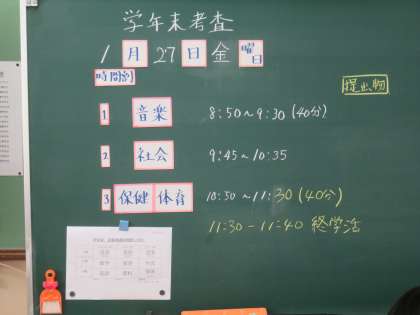 学年末考査
1月27日金曜日
時間割
提出物
1 音楽 8:50～9:30 (40分)
2 社会 9:45～10:35
3 保健体育 10:50～11:30 (40分)
11:30-11:40 終学活